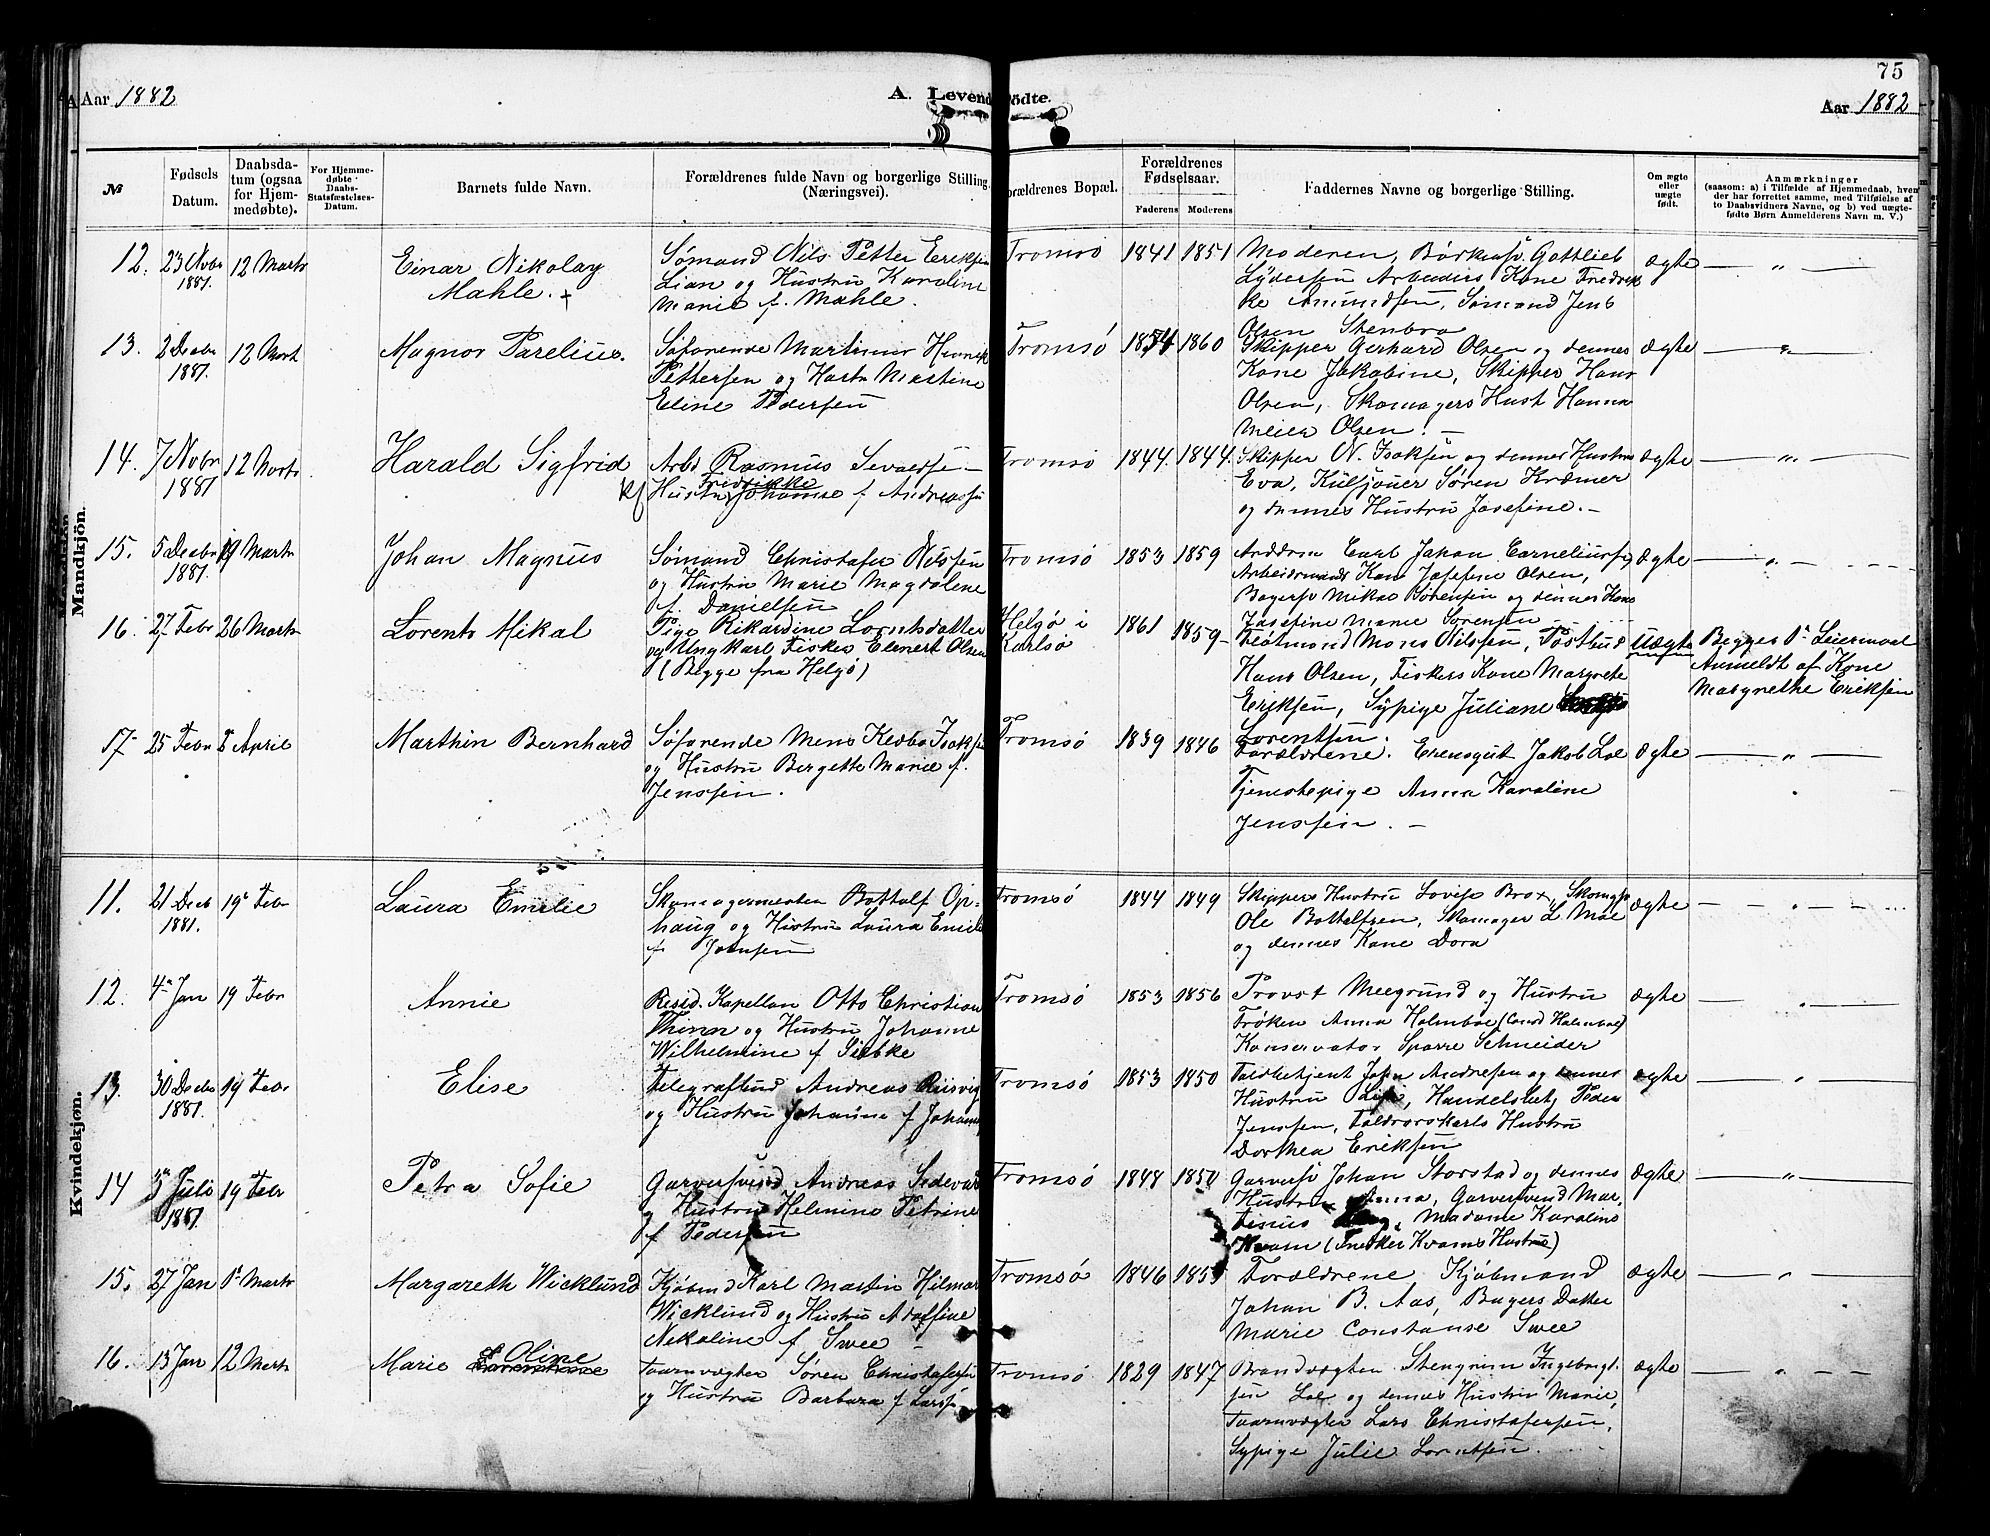 75
Aar 1882
A. Levendefødte.
Aar 1882
№
Fødsels Datum.
Daabsdatum (ogsaa for Hjemmedøbte).
For Hjemmedøbte Daabs-Statsfæstelses-Datum.
Barnets fulde Navn.
Forældrenes fulde Navn og borgerlige Stilling. (Næringsvei).
Forældrenes Bopæl.
Forældrenes Fødselsaar.
Faderens
Moderens
Faddernes Navne og borgerlige Stilling.
Om ægte eller uægte født.
Anmærkninger
(saasom: a) i Tilfælde af Hjemmedaab, hvem
der har forrettet samme, med Tilføielse af
to Daabsvidners Navne, og b) ved uægte-
fødte Børn Anmelderens Navn m. V.)
Mandkjön.
12. 23 Novbr 1881. 12 Marts
Einar Nikolay
Mahle.
Sømand Nils Petter Eriksen
Lian og Hustru Karoline
Marie f. Mahle.
Tromsö 1841 1851
Moderen, Gottlieb
Lydersen Arbeiders Kone Fredrik
ke Amundsen, Sømand Jens
Olsen Stenbro
ægte — " —
13. 2 Decbr 1881. 12 Mart
Magnor Parelius.
Søfarende Martinus Henrik
Pettersen og Hustr Martine
Eline Pedersen
Tromsö 1854 1860
Skipper Gerhard Olsen og dennes
Kone Jakobine, Skipper Hans
Olsen, Skomagers Hust Hanna
Meier Olsen. —
ægte — " —
14. 7 Novbr 1881 12 Marts
Harald Sigfrid
Arbd Rasmus Sevaldse —
Fridrikke
Hustr Johanne f. Andreassen
Tromsö 1844. 1844.
Skipper N. Isaksen og dennes Hustru
Eva, Søren Kræmer
og dennes Hustru Josefine. —
ægte — " —
15. 5 Decbr 1881. 19 Marts
Johan Magnus
Sømand Christofer Nilssen
og Hustru Marie Magdalene
f. Danielsen
Tromsö 1853 1859
Carl Johan Corneliussen
Arbeidsmands Kone Josefine Olsen,
Bagersv Mikal Sørensen og dennes Kone
Josefine Marie Sørensen
ægte — " —
16. 27 Febr 26 Marts
Lorents Mikal
Pige Rikardine Lorntsdatter
og Ungkarl Fisker Elenert Olsen
(Begge fra Helgø)
Helgø i
Karlsö
1861 1859 —
Mons Nilssen, Postbud
Hans Olsen, Fiskers Kone Margrete
Eriksen, Sypige Juliane
Lorentsen.
Uægte
Begges 1ste Leiermaal
Anmeldt af Kone
Margrethe Eriksen
17 25 Febr 8 April
Marthin Bernhard
Søfarende Mons Isaksen
og Hustru Bergette Marie f.
Jenssen.
Tromsö 1839 1846
Forældrene. Jakob Lol
Tjenestepige Anna Karoline
Jenssen. —
ægte — " —
Kvindekjøn.
11. 21 Decb 1881. 19 Febr
Laura Emelie
Skomagermester Bottolf Op-
haug og Hustru Laura Emelie
f. Johnsen
Tromsö 1844 1849
Skippers Hustru Lovise Brox, Skomagersv
Ole Bottolfsen, Skomager L. Moe
og dennes Kone Dora
ægte — " —
12. 4 Jan 19 Febr
Annie
Resid. Kapellan Otto Christian
Thinn og Hustru Johanne
Wilhelmine f. Siebke
Tromsö 1853 1856
Provst Meegrund og Hustru
Frøken Anna Holmboe (Cand Holmboe)
Konservator Sparre Schneider
ægte — " —
13. 30 Decbr 1881. 19 Febr
Elise
Telegrafbud Andreas Riisvig
og Hustru Johanne f. Johanns
Tromsö 1853 1850
Toldbetjent John Andresen og dennes
Hustru, Handelsbetj Peder
Jenssen, Toldrorskarls Hustru
Dorthea Eriksen
ægte — " —
14 3 Juli 1881 19 Febr
Petra Sofie
Garversvend Andreas Sedevar
og Hustru Helmine Petrine
f. Pedersen
Tromsö 1848 1850
Garversv Johan Storstad og dennes
Hustru Anna, Garversvend Mar-
tinius, Madame Karoline
Kvam (Snedker Kvams Hustru)
ægte — " —
15. 27 Jan 1ste Marts
Margareth Wicklund
Kjøbmd Karl Martin Hilmar
Wicklund og Hustru Adolfine
Nikoline f. Swee —
Tromsö 1846 1853
Forældrene Kjøbmand
Johan B. Aas, Bagers Datter
Marie Constanse Swee
ægte — " —
16. 13 Jan 12 Marts
Marie Oline
Taarnvægter Søren Christofersen
og Hustru Barbara f. Larss
Tromsö 1829 1847
Brandvægter Stengrim Ingebrigt-
sen Lol og dennes Hustru Marie,
Taarnvægter Lars Christofersen,
Sypige Julie Lorntsen.
ægte — " —